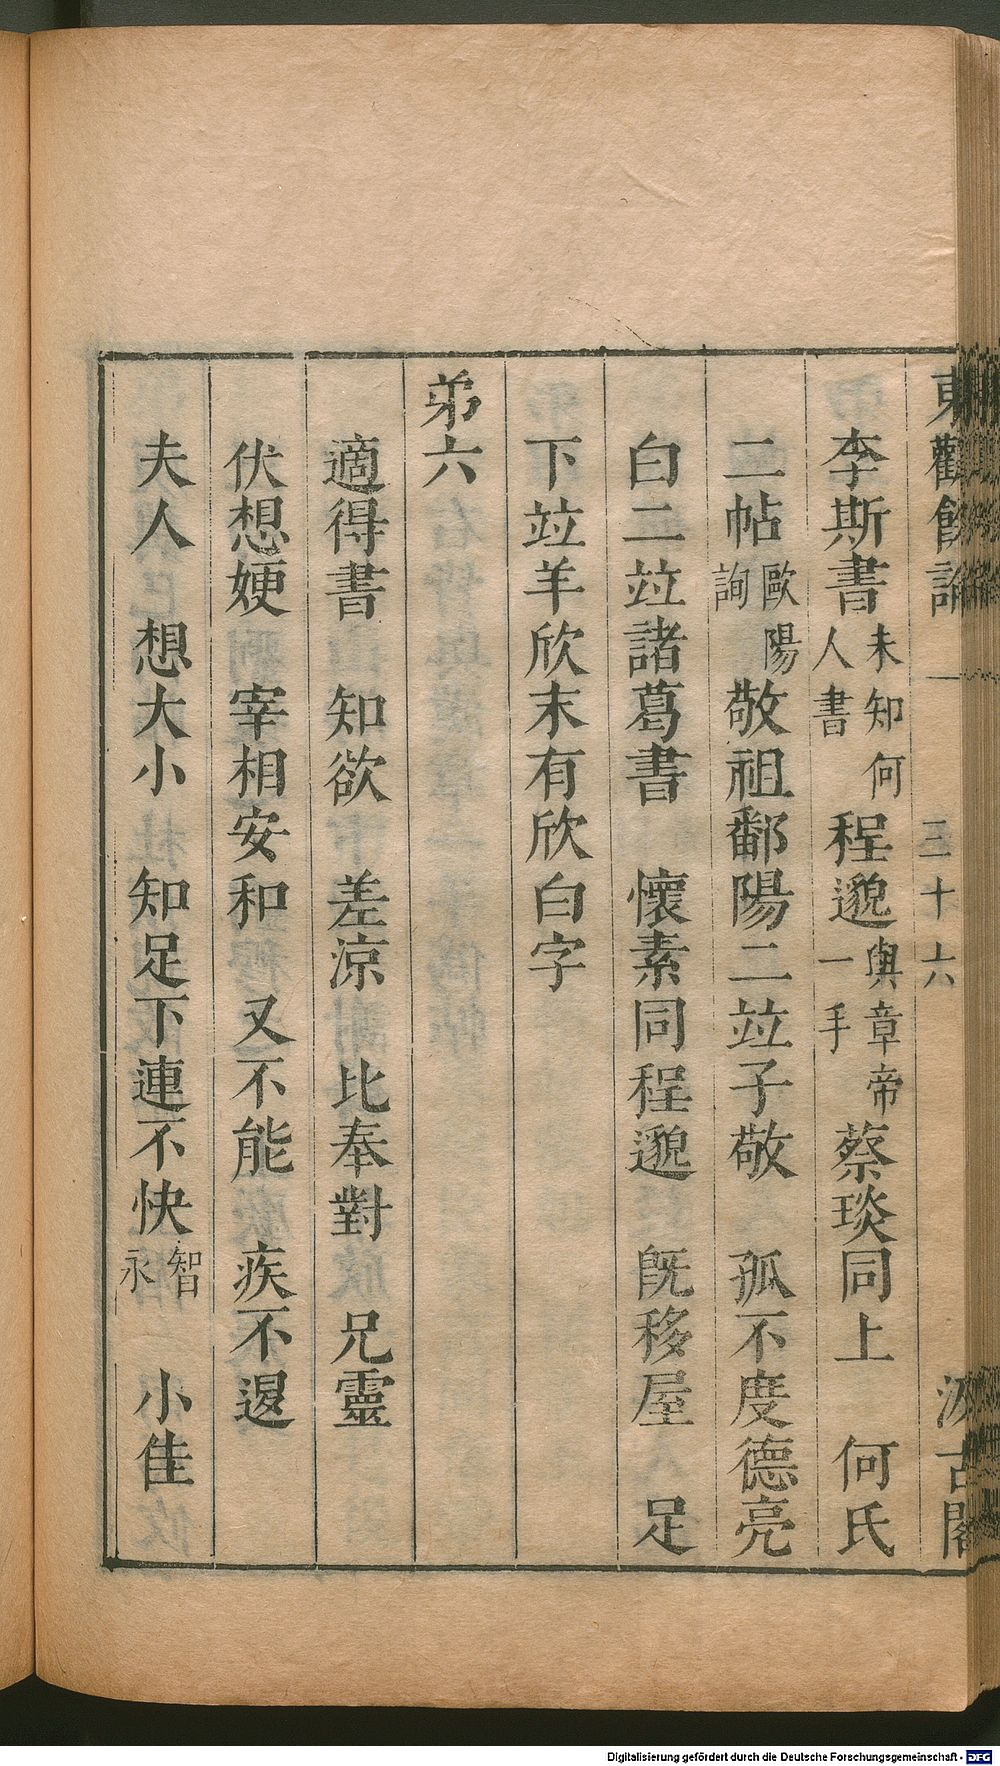 東觀餘論 一 三十六 汲古閣
李斯書未知何人書 程邈與章帝一手 蔡琰同上 何氏
二帖歐陽詢 敬祖鄱陽二竝子敬 孤不度德亮
白二竝諸葛書 懷素同程邈 旣移屋 足
下竝羊欣末有欣白字
弟六
適得書 知欲 差涼 比奉對 兄靈
伏想㛐 宰相安和 又不能 疾不退
夫人 想大小 知足下連不快智永 小佳
Digitalisierung gefördert durch die Deutsche Forschungsgemeinschaft - DFG